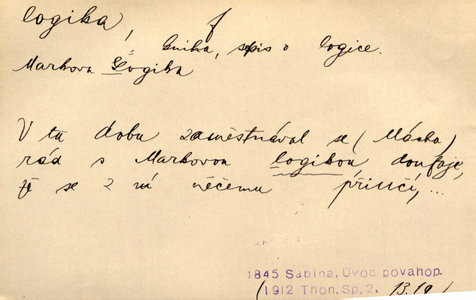 logika, f
kniha, spis o logice.
Markova Logika
V tu dobu zaměstnával se (Mácha)
rád s Markovou logikou doufaje,
že se z ní něčemu přiučí,...
1845 Sabina, Úvod povahop.
(1912 Thon, Sp. 2.